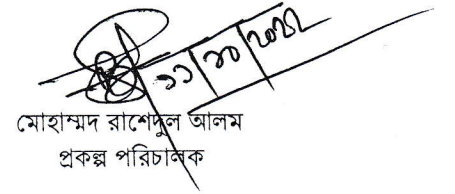 ১১/১০/২০২২
মোহাম্মদ রাশেদুল আলম
প্রকল্প পরিচালক